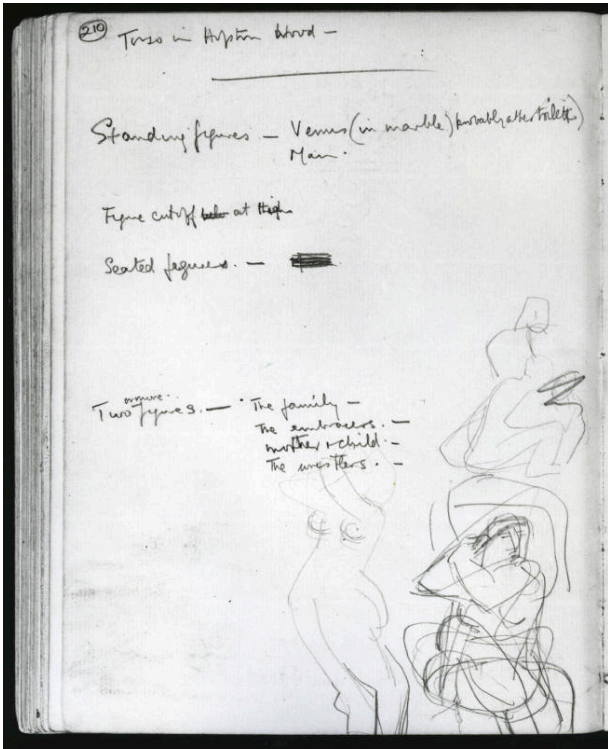 210
Torso in Hopton Wood —
Standing figures — Venus (in marble) (probably after toilette)
Man.
Figure cut off at thigh
Seated figures. —
or more..
Two figures. — The family —
The embracers. —
mother + child. —
The wrestlers. —